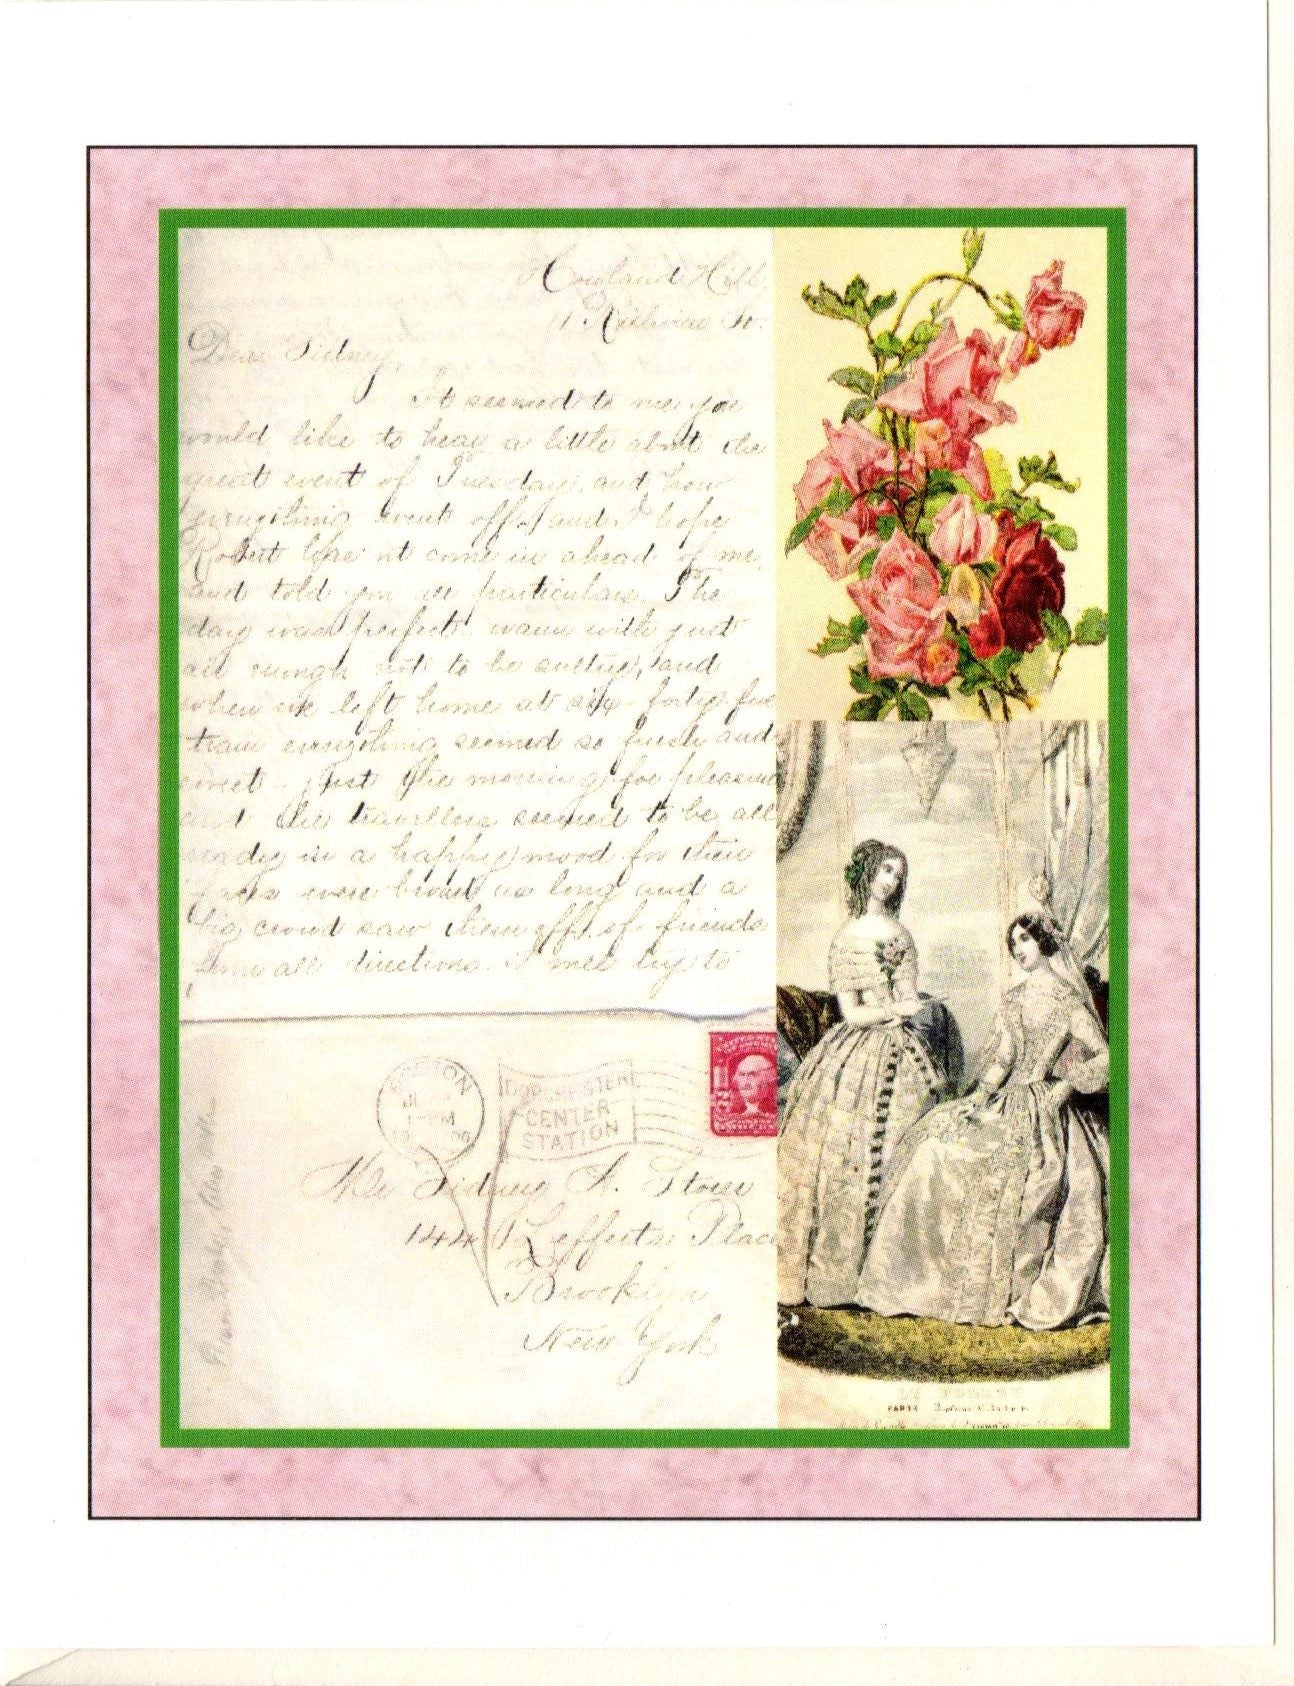 Howland Hill,
Dear Sidney,
It seemed to me you
would like to hear a little about the
great event of Tuesday, and how
everything went off, and I hope
Robert has n't come in ahead of me,
and told you all particulars. The
day was perfect, warm with just
air enough not to be sultry, and
when we left home at six-forty five
train everything seemed so fresh and
sweet - just the morning for pleasure
and the travellers seemed to be all
ready in a happy mood for their
faces were broad as long and a
big crowd saw them off, of friends
from all directions. I will try to
BOSTON
DORCHESTER
CENTER
STATION
Mr Sidney A. Storer
144 Lefferts Place
Brooklyn
New York
PARIS